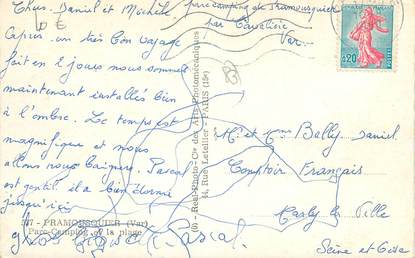 Chers Daniel et Michèle
Après un très bon voyage
fait en 2 jours nous sommes
maintenant installés bien
à l'ombre. Le temps est
magnifique et nous
allons nous baigner. Pascal
est gentil il a bien dormi
jusqu'ici
gros bisous Pascal.
parc camping de Pramousquier
par Cavalière
Var
Mr et Mme Bally Daniel
Comptoir Français
Marly la Ville
Seine et Oise
0,20
PRAMOUSQUIER (Var)
Parc-Camping et la plage
Real-Photo - Cie des Arts Photomécaniques
44, Rue Letellier - PARIS (15e)